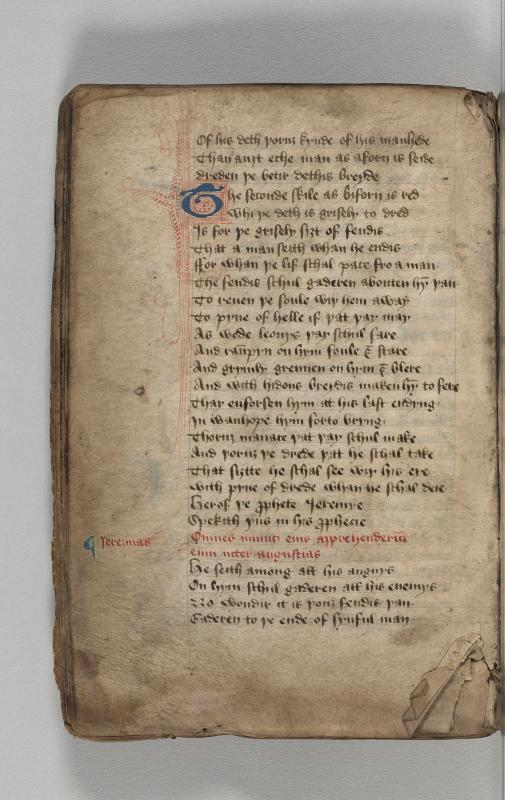 Of his deth þoruȝ kynde of his manhede
Than auȝt eche man as aforn is seide
dreden þe betir dethis breyde
The seconde skile as biforn is red
Whi þe deth is grisely to dred
Is for þe grisely siȝt of fendis
That a man seith whan he endis
Ffor whan þe lif schal pace fro a man
The fendis schul gaderen abouten hȳ þan
To reuen þe soule wiþ hem away
To pyne of helle if þat þay may
As wode leonys þay schul fare
And rampyn on hym foule & stare
And grymly grennen on hym & blere
And with hidous breydis maken hȳ to fere
Thay enforsen hym at his last endyng
In wanhope hym forto bryng
Thoruȝ manace þat þay schul make
And þoruȝ þe drede þat he schal take
That siȝtte he schal see wiþ his eye
With pyne of drede whan he schal deie
Herof þe ꝓphete Ieremye
Spekith þus in his ꝓphecie
Ieremias
Omnes inimici eius apprehenderūt
eum inter angustias
He seith among all his angurs
On hym schul gaderen all his enemys
No wondir it is þouȝ fendis þan
Gaderen to þe ende of synful man